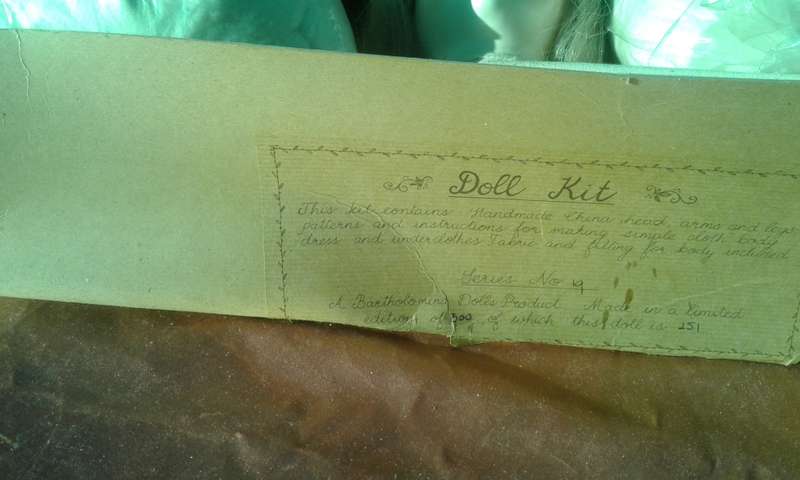 Doll Kit
This kit contains: Handmade China head, arms and legs
patterns and instructions for making simple cloth body
dress and underclothes Fabric and filling for body included
Series No 19
A Bartholomew Dolls Product Made in a limited
edition of 300 of which this doll is 251